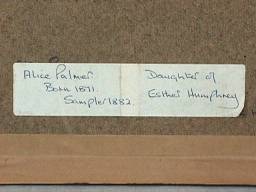 Alice Palmer Daughter of
Born 1871. Esther Humphrey
Sampler 1882.